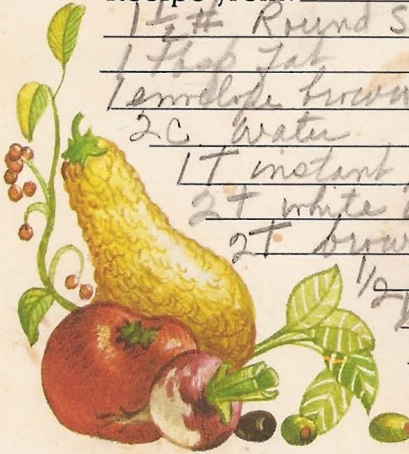 1 1/2 # Round S
1 Tbsp Fat
1 envelope brown
2 C Water
1 T instant
2 T white
2 T brow
1/2